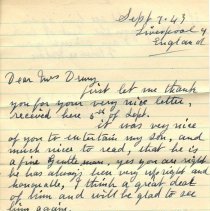 Sept 7. 43
Liverpool 4
England
Dear Mrs Drury
First let me thank
you for your very nice letter,
received here 5th of Sept.
it was very nice
of you to entertain my son, and
much nicer to read, that he is
a fine Gentleman, yes you are right
he has always been very upright and
honourable, I think a great deal
of him and will be glad to see
him again.